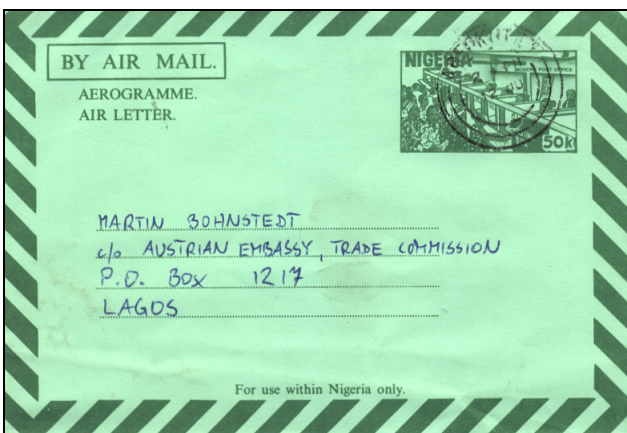 BY AIR MAIL.
AEROGRAMME.
AIR LETTER.
NIGERIA
50k
MARTIN BOHNSTEDT
c/o AUSTRIAN EMBASSY, TRADE COMMISSION
P.O. BOX 1217
LAGOS
For use within Nigeria only.